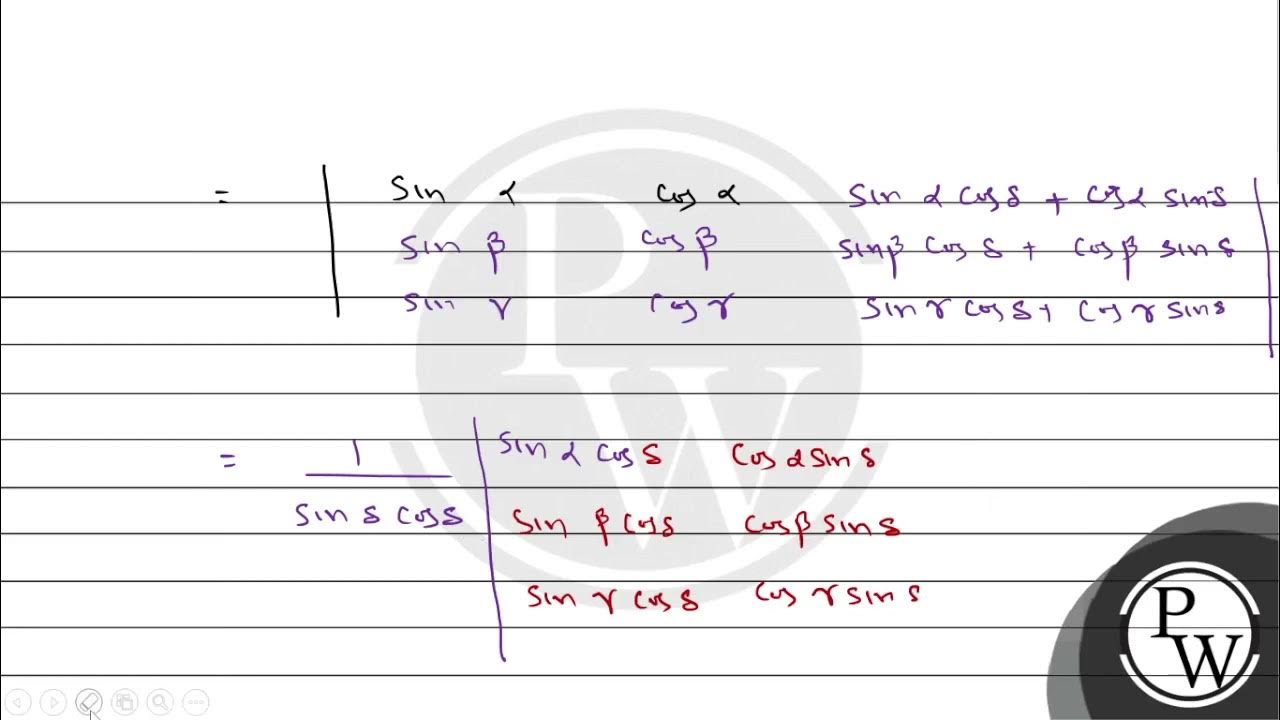 = | sin α cos α sin α cos δ + cos α sin δ |
sin β cos β sin β cos δ + cos β sin δ
sin γ cos γ sin γ cos δ + cos γ sin δ
= 1 | sin α cos δ cos α sin δ
sin δ cos δ sin β cos δ cos β sin δ
sin γ cos δ cos γ sin δ
P
W
P
W